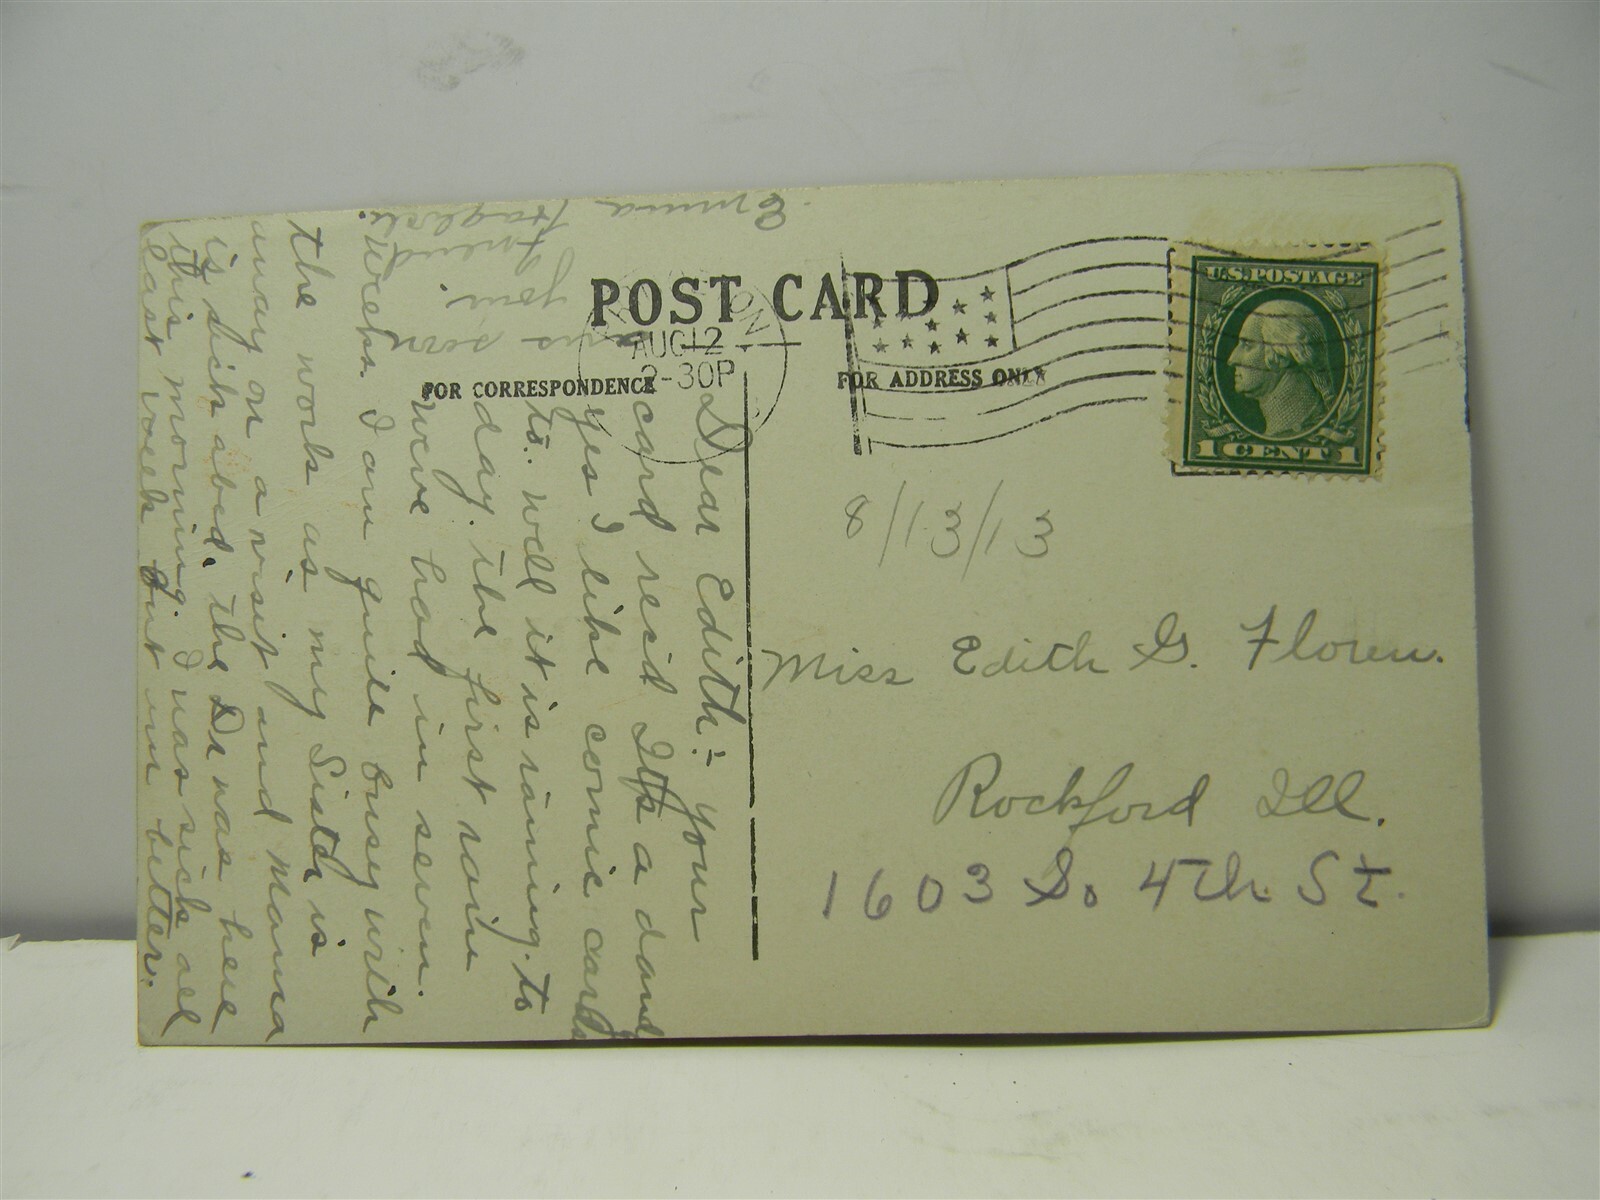 POST CARD
FOR CORRESPONDENCE
FOR ADDRESS ONLY
AUG 12
2-30P
U.S. POSTAGE
1 CENT 1
8/13/13
Miss Edith G. Floren.
Rockford Ill.
1603 So 4th St.
Dear Edith:- your
card rec'd Its a dandy
yes I like comic cards
to. well it is raining to
day. the first rain
weve had in seven
weeks. I am quite busy with
the work as my Sister is
away on a visit and Mama
is sick abed. the Dr was here
this morning. I was sick all
last week but im better.
ans soon
your
Friend
Emma